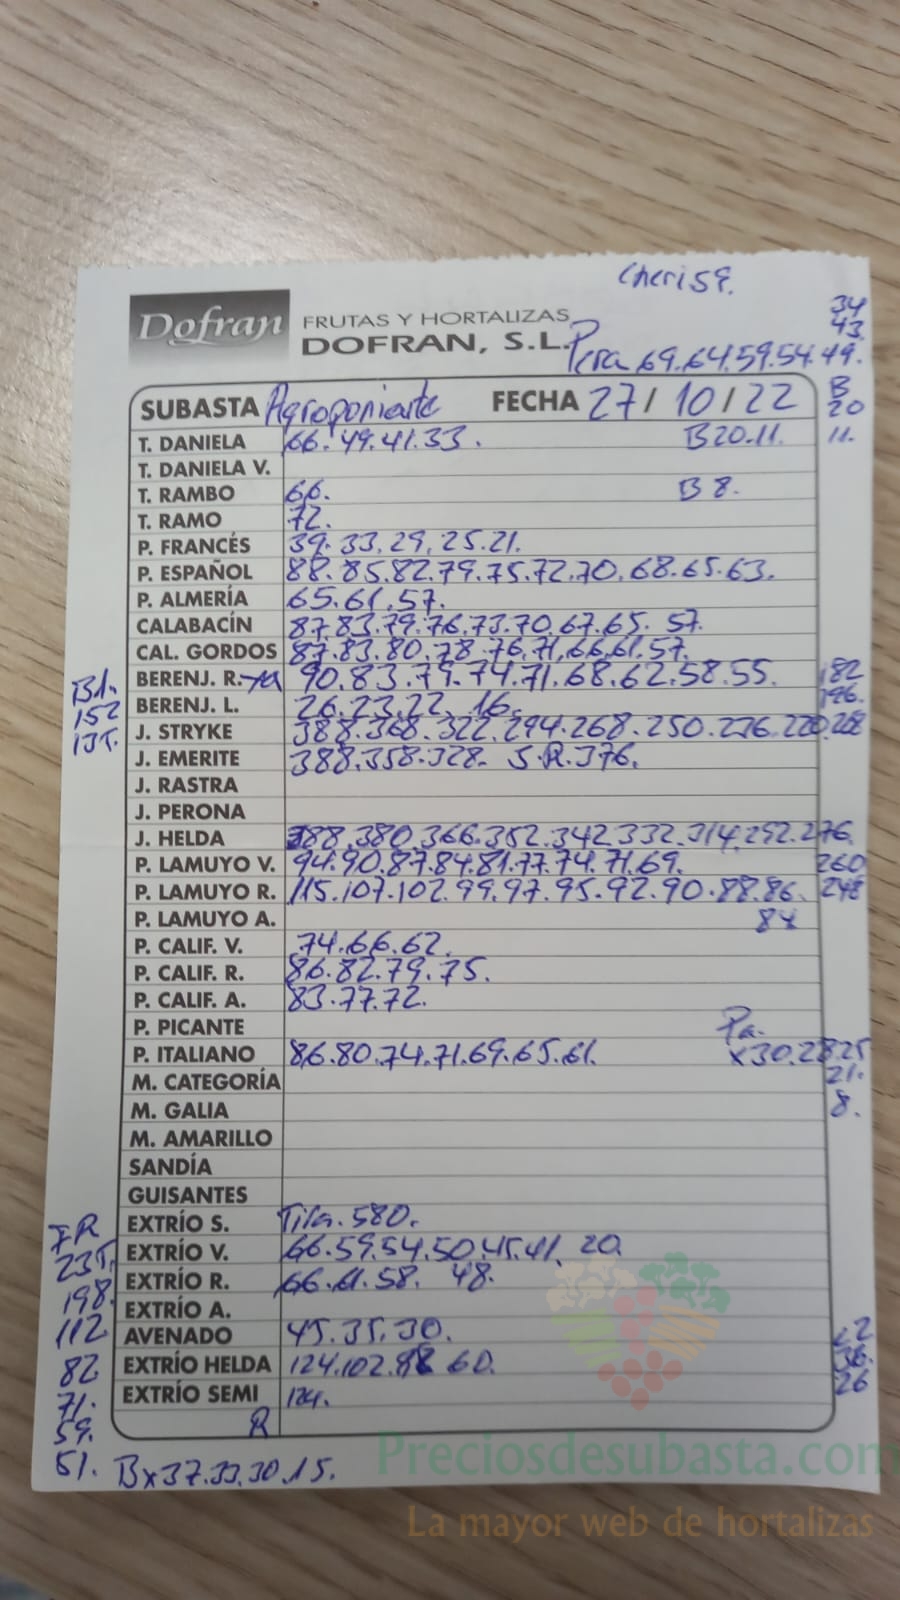 Cheri 59.
34
43
Dofran FRUTAS Y HORTALIZAS
DOFRAN, S.L.
Pera 69.64.59.54.49.
SUBASTA Agroponiente FECHA 27/10/22
B
20
11.
T. DANIELA 66.49.41.33. B20.11.
T. DANIELA V.
T. RAMBO 66. B 8.
T. RAMO 72.
P. FRANCÉS 39.33.29.25.21.
P. ESPAÑOL 88.85.82.79.75.72.70.68.65.63.
P. ALMERÍA 65.61.57.
CALABACÍN 87.83.79.76.73.70.67.65. 57.
CAL. GORDOS 87.83.80.78.76.71.66.61.57.
BERENJ. R. 90.83.79.74.71.68.62.58.55. 182
BERENJ. L. 26.23.22. 16. 196.
B1.
152
135.
J. STRYKE 388.368.322.294.268.250.226.220.
J. EMERITE 388.358.328. S.R.376.
J. RASTRA
J. PERONA
J. HELDA 388.380.366.352.342.332.314.292.276.
P. LAMUYO V. 94.90.87.84.81.77.74.71.69. 260
P. LAMUYO R. 115.107.102.99.97.95.92.90.88.86. 248
P. LAMUYO A. 84
P. CALIF. V. 74.66.62.
P. CALIF. R. 86.82.79.75.
P. CALIF. A. 83.77.72.
P. PICANTE Pa.
P. ITALIANO 86.80.74.71.69.65.61. x30.28.25
M. CATEGORÍA 21.
M. GALIA 8.
M. AMARILLO
SANDÍA
GUISANTES
EXTRÍO S. 580.
EXTRÍO V. 66.59.54.50.45.41. 20.
EXTRÍO R. 66.61.58. 48.
EXTRÍO A.
AVENADO 45.35.30.
EXTRÍO HELDA 124.102. 60. 36.
EXTRÍO SEMI 124. 26
R
235.
198.
112
82
71.
59.
51. Bx37.33.30.15.
Preciosdesubasta.com
La mayor web de hortalizas